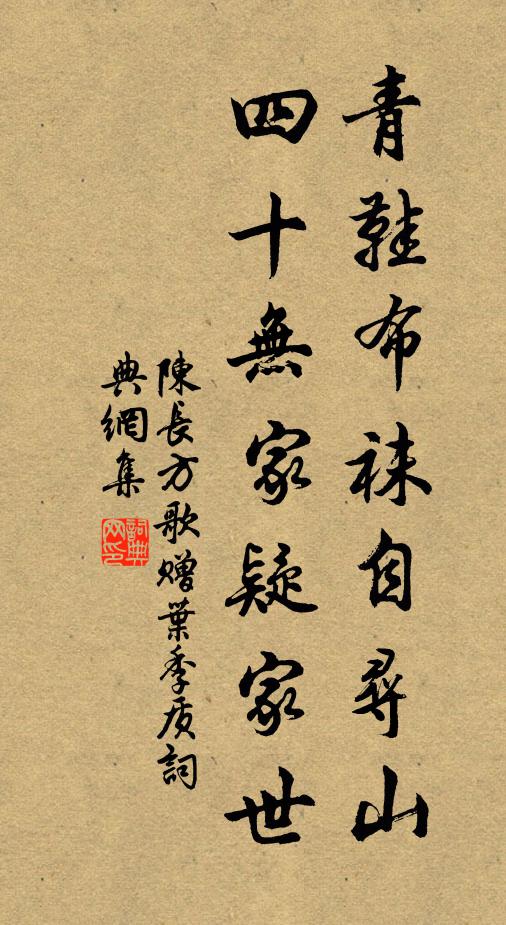 青鞋布袜自尋山
四十無家疑家世
陳長方歌贈葉季质詞
典網集
詞典网印